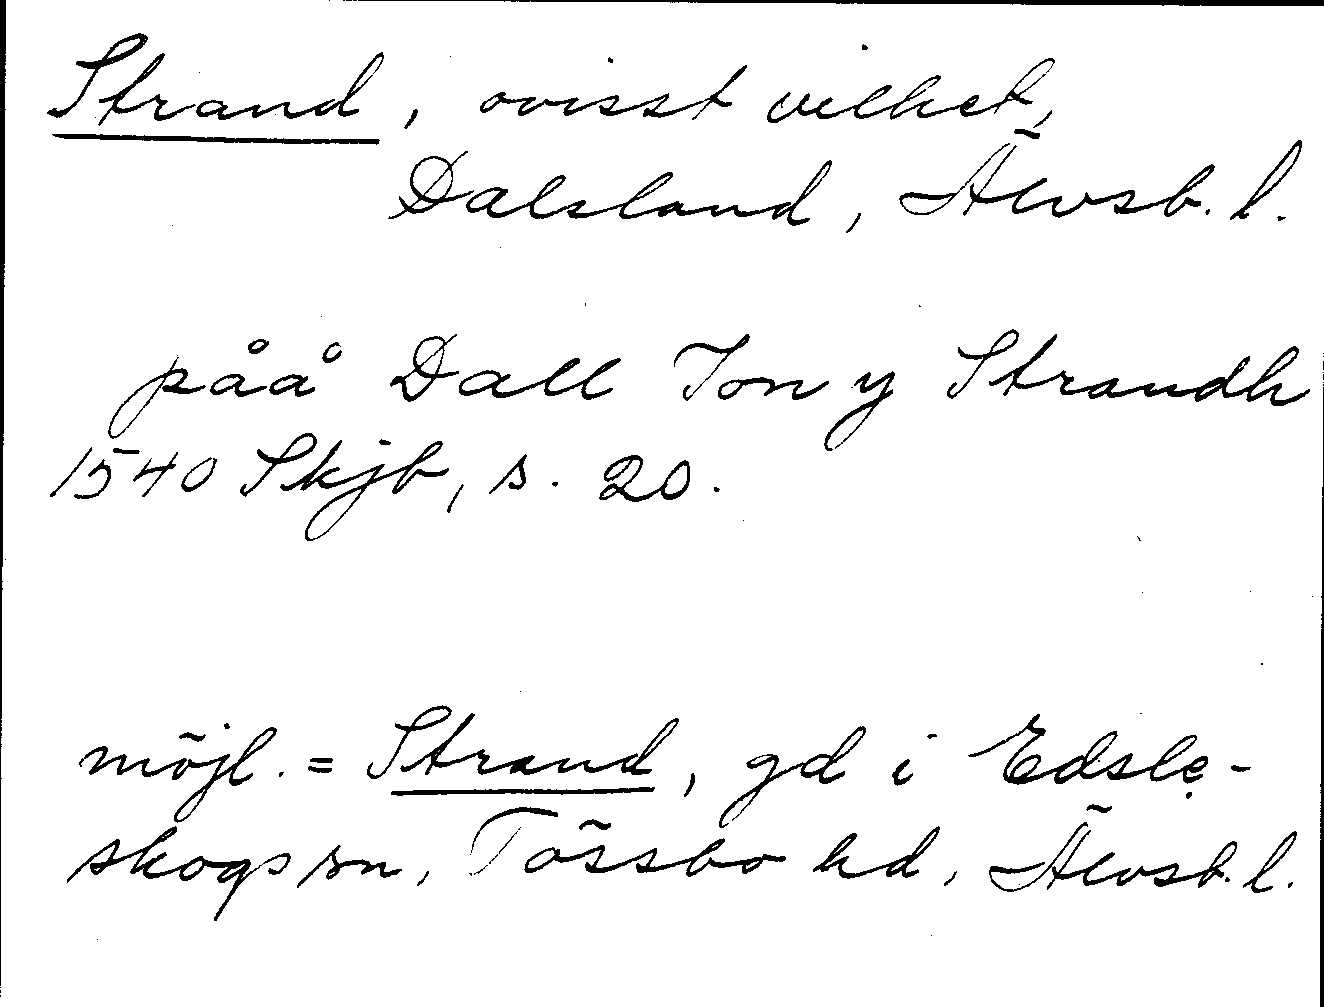 Strand, ovisst vilket,
Dalsland, Älvsb. l.
påå Dall Jon y Strandh
1540 Skjb, s. 20.
möjl. = Strand, gd i Edsle-
skogs sn, Tössbo hd, Älvsb. l.